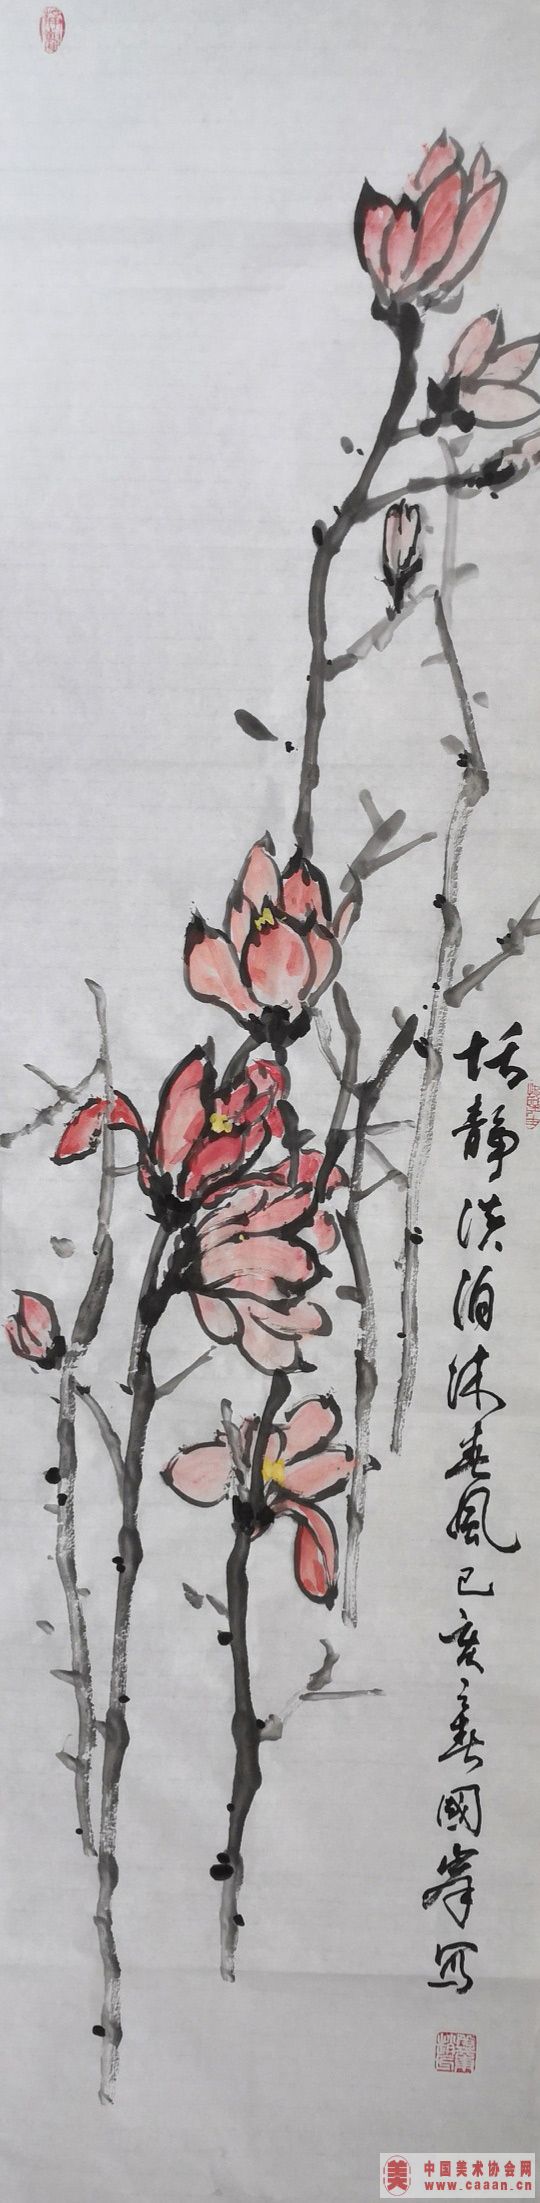 恬静淡泊沐春风己亥春國峯写
美 中国美术协会网
www.caaan.cn